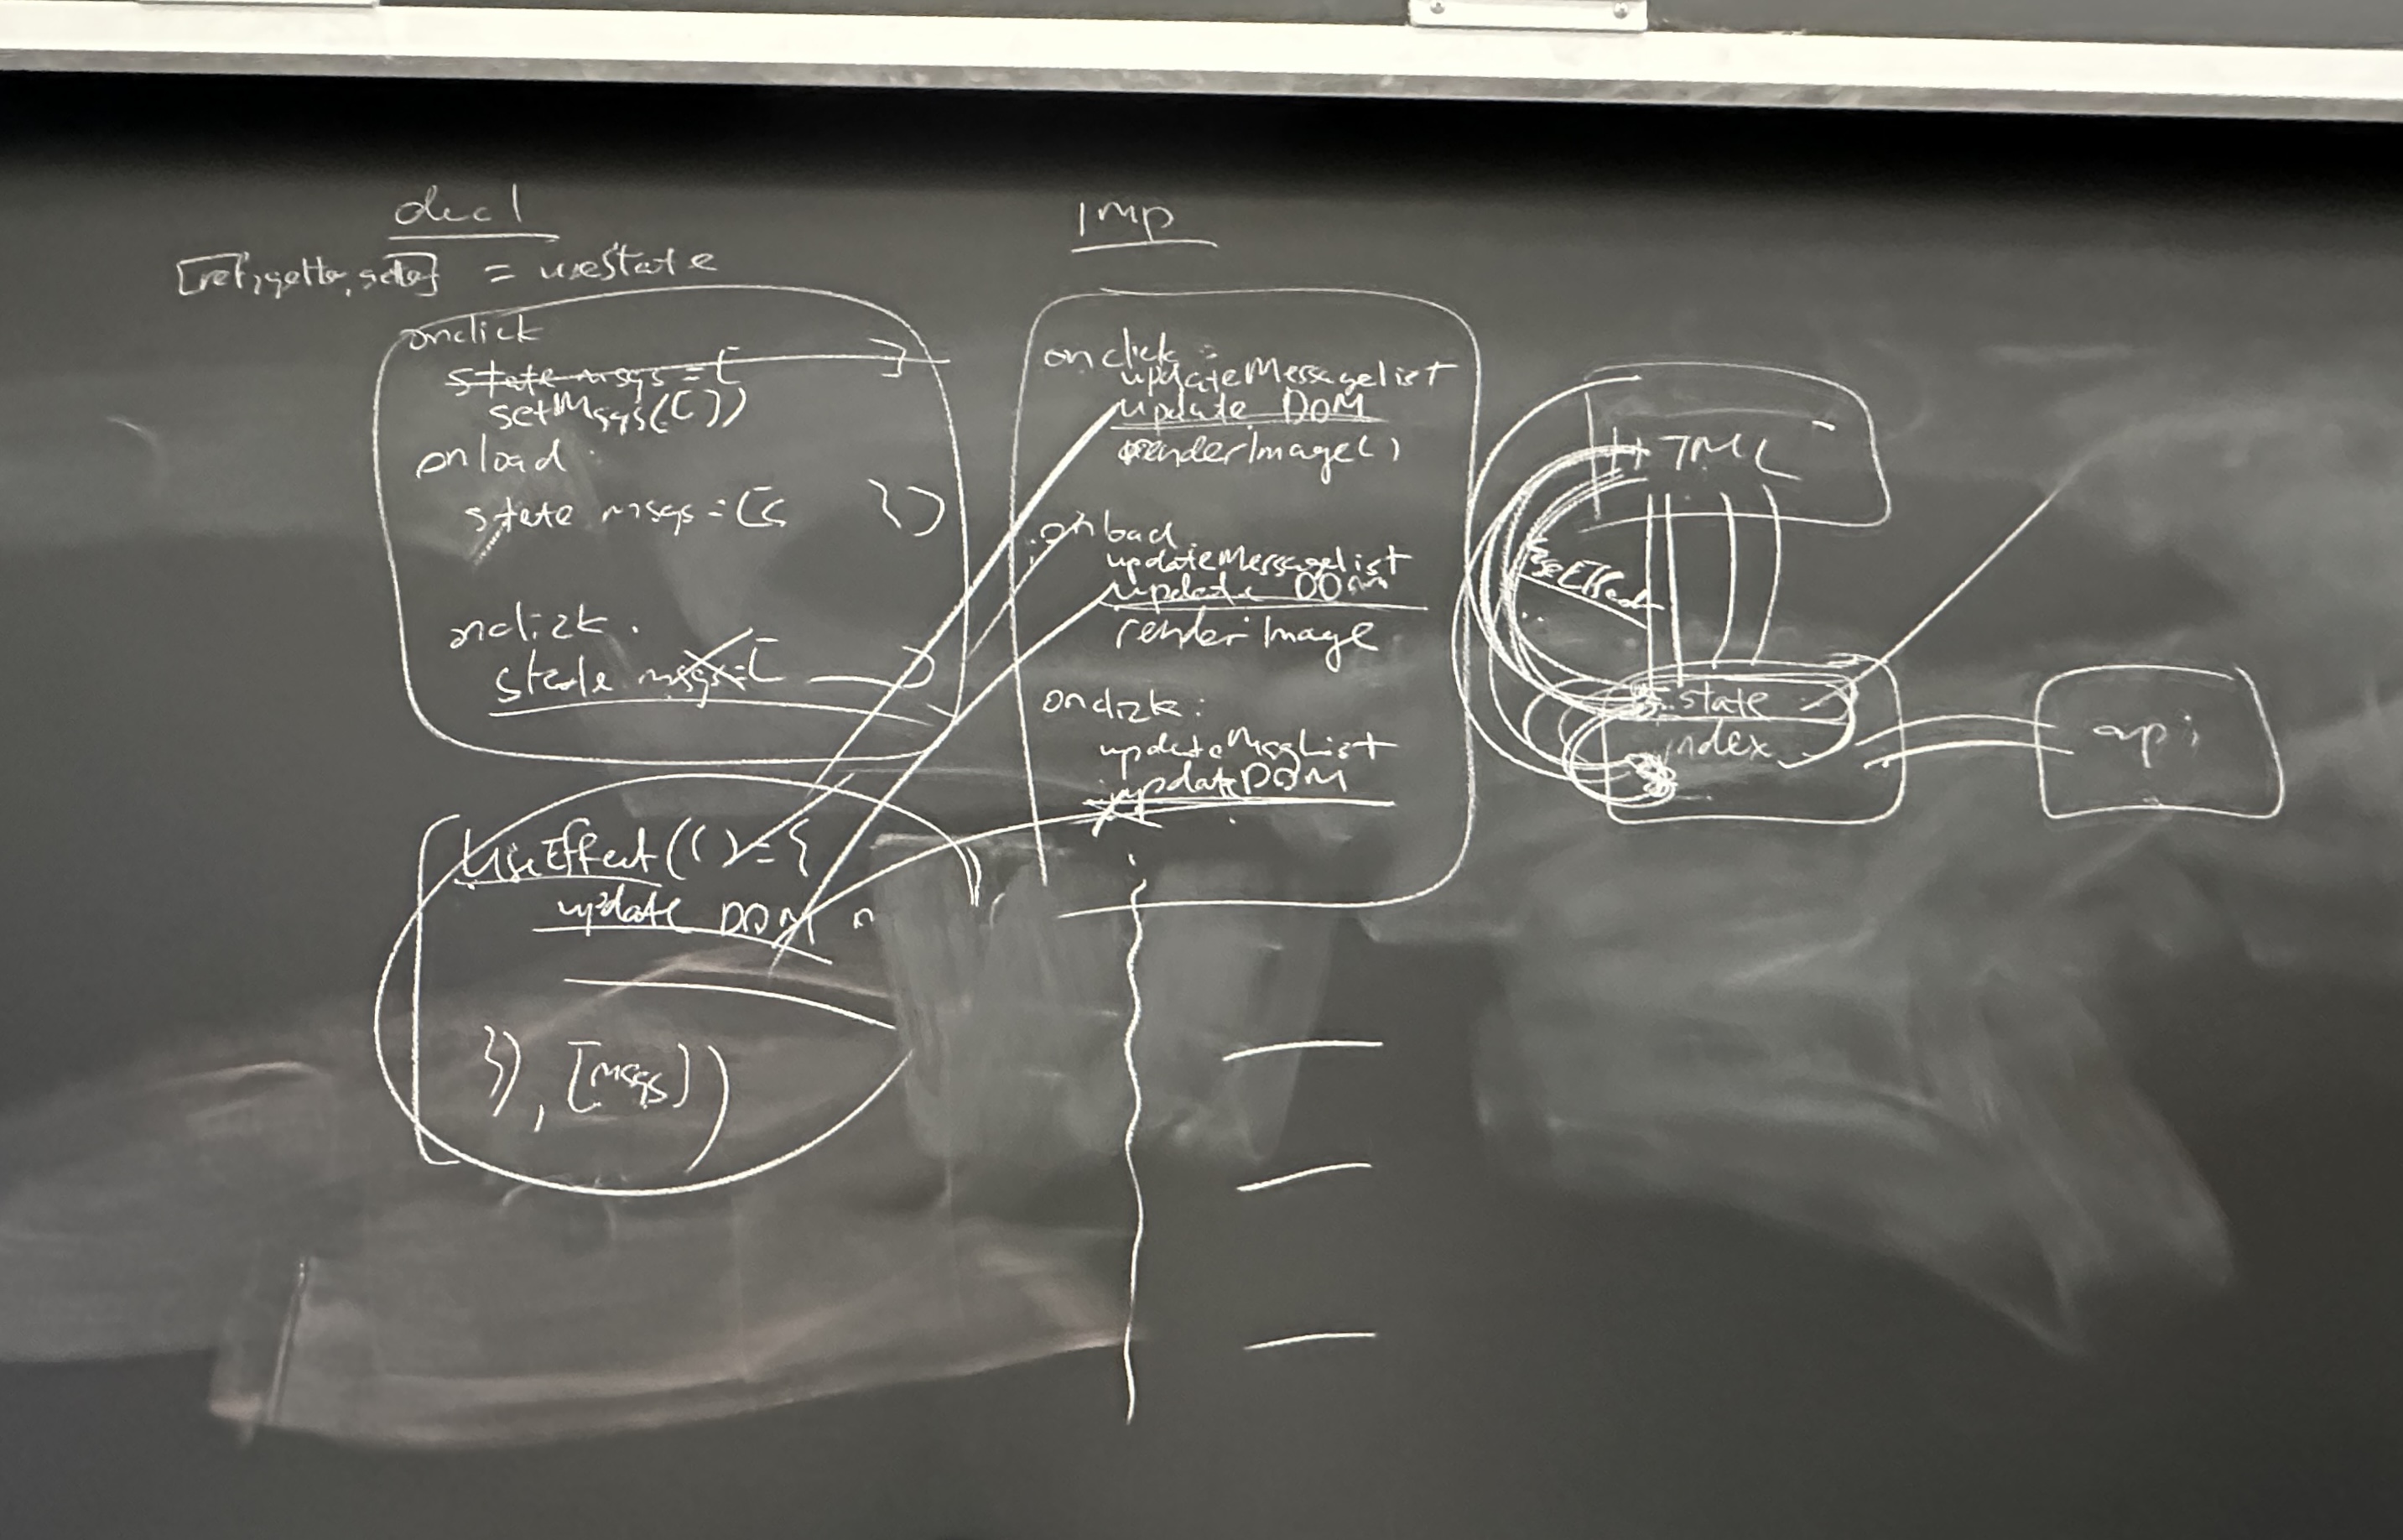 decl
[ref, getter, setter] = useState
onclick
state msgs = [ ]
setMsgs([])
onload
state msgs = [{ }]
onclick.
state msgs = [ ]
useEffect(() = {
update DOM
}), [msgs])
imp
onclick:
updateMessagelist
update DOM
renderImage()
onload
updateMessagelist
update DOM
renderImage
onclick:
updateMsgList
updateDOM
HTML
useEffect
state
index
api